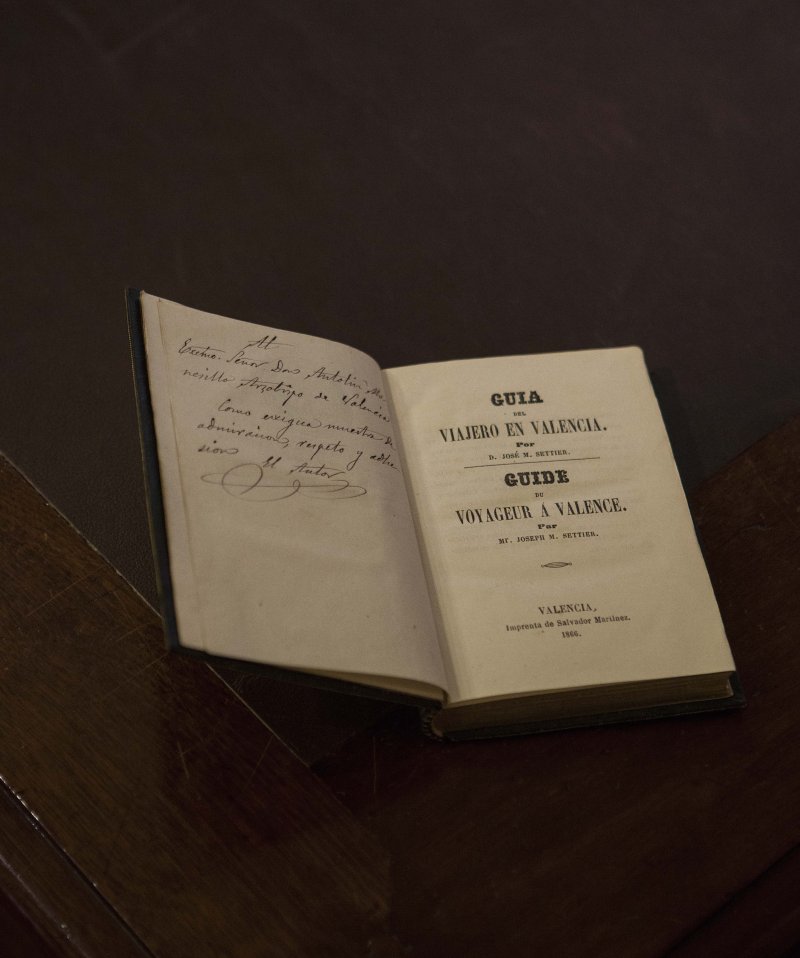 Al
Exctmo. Señor Don Antolín Mo
nesillo Arzobispo de Valencia
Como exigua muestra de
admiración, respeto y adhe
sion El Autor
GUIA
DEL
VIAJERO EN VALENCIA.
Por
D. JOSÉ M. SETTIER.
GUIDE
DU
VOYAGEUR Á VALENCE.
Par
Mr. JOSEPH M. SETTIER.
VALENCIA,
Imprenta de Salvador Martinez.
1866.